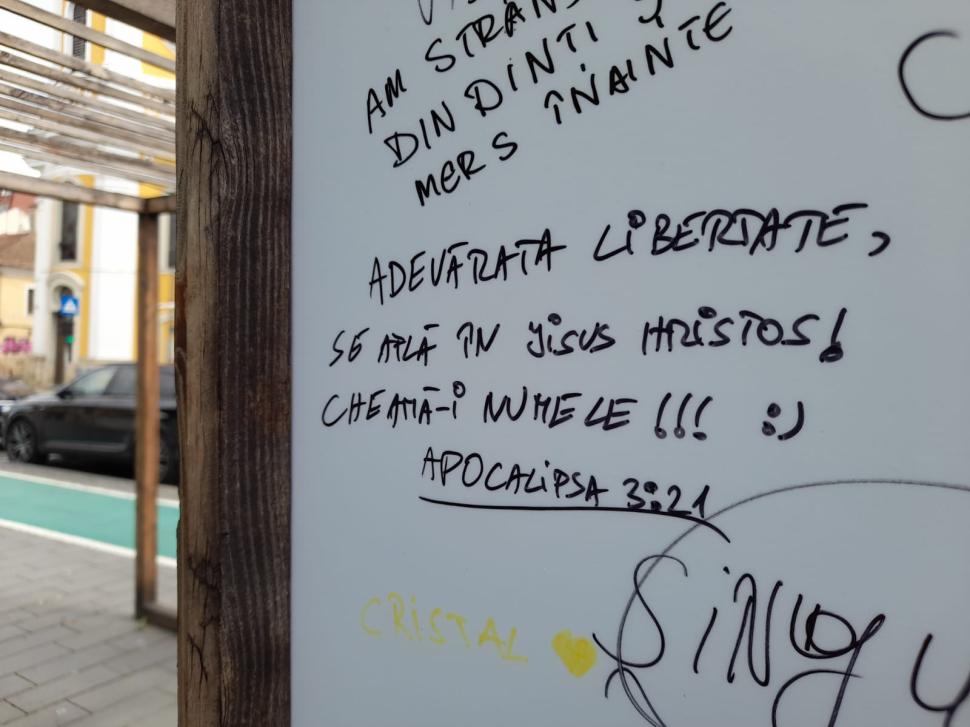 AM STRÂNS
DIN DINȚI ȘI
MERS ÎNAINTE
ADEVĂRATA LiBERTATE,
SE AFLĂ ÎN JiSUS HRiSTOS!
CHEAMĂ-i NUMELE!!! :)
APOCALiPSA 3:21
CRiSTAL